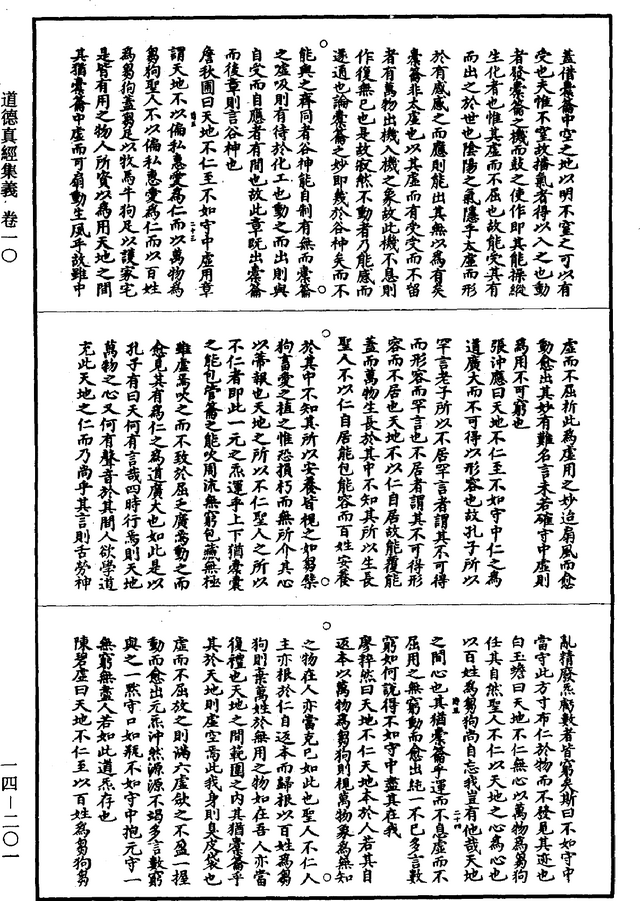 蓋借橐籥中空之地以明不窒之可以有
受也夫惟不窒故播氣者得以入之也動
者發橐籥之機而鼓之使作即其能操縱
生化者也惟其虛而不屈也故能受其有
而出之於世也陰陽之氣隱乎太虛而形
於有感感之而應則能出其無以為有矣
橐籥非太虛也以其虛而有受受而不留
者有萬物出機入機之象故此機不息則
作復無已也是故寂然不動者乃能感而
遂通也論橐籥之妙即幾於谷神矣而不
能與之齊同者谷神能自制有無而橐籥
之虛吸則有待於化工也動之而出則與
自受而自應者有間也故此章既出橐籥
而後章則言谷神也
詹秋圃曰天地不仁至不如守中虛用章
謂天地不以偏私惠愛為仁而以萬物為
芻狗聖人不以偏私惠愛為仁而以百姓
為芻狗蓋芻足以牧馬牛狗足以護家宅
是皆有用之物人所資以為用天地之間
其猶橐籥中虛而可扇動生風乎故雖中
虛而不屈折此為虛用之妙迨扇風而愈
動愈出其妙有難名言未若確守中虛則
為用不可窮也
張沖應曰天地不仁至不如守中仁之為
道廣大而不可得以形容也故孔子所以
罕言老子所以不居罕言者謂其不可得
而形容而罕言也不居者謂其不可得形
容而不居也天地不以仁自居故能覆能
蓋而萬物生長於其中不知其所以生長
聖人不以仁自居能包能容而百姓安養
於其中不知其所以安養皆視之如芻榮
狗畜愛之植之惟恐損朽而無所介其心
以蘄報也天地之所以不仁聖人之所以
不仁者即此一元之炁運乎上下猶橐囊
之能包管籥之能吹周流無窮包藏無極
雖虛焉吹之而不致於屈乏廣焉動之而
愈見其有為仁之為道廣大也如此是以
孔子有曰天何有言哉四時行焉則天地
萬物之心又何有聲音於其間人欲學道
充此天地之仁而乃尚乎其言則舌勞神
亂精廢炁虧數者皆窮矣斯曰不如守中
當守此方寸布仁於物而不發見其迹也
白玉蟾曰天地不仁無心以萬物為芻狗
任其自然聖人不仁以天地之心為心也
以百姓為芻狗尚自忘我豈有他哉天地
之間心也其猶橐籥乎運而不息虛而不
屈用之無窮動而愈出純一不已多言數
窮如何說得不如守中盡其在我
廖粹然曰天地不仁天地本於人若其自
返本以萬物為芻狗則視萬物象為無知
之物在人亦當克己如此也聖人不仁人
主亦根於仁自返本而歸根以百姓為芻
狗則棄萬姓於無用之物如在吾人亦當
復禮也天地之間範圍之內其猶橐籥乎
其於天地則虛空焉此我身則臭皮袋也
虛而不屈放之則滿六虛斂之不盈一握
動而愈出元炁沖然源源不竭多言數窮
與之一默守口如瓶不如守中抱元守一
無窮無盡人若如此道炁存也
陳碧虛曰天地不仁至以百姓為芻狗芻
道德真經集義 卷一〇
一四—二〇一